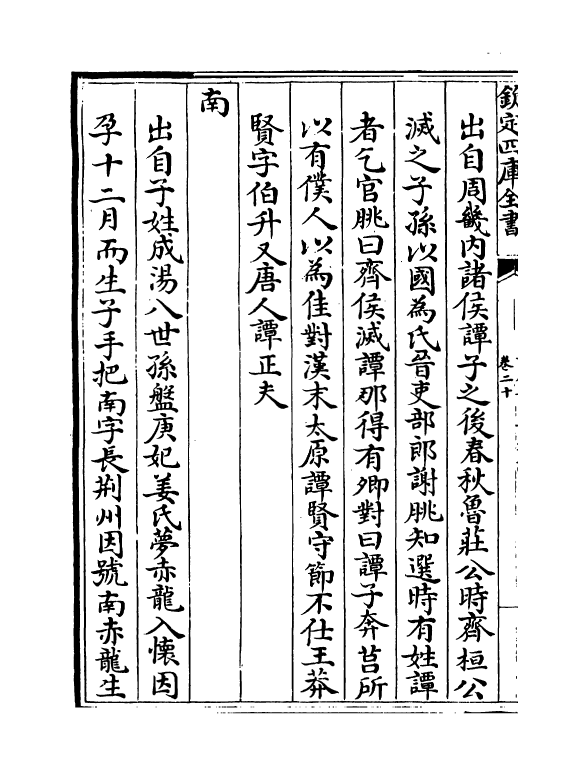 欽定四庫全書
卷二十
出自周畿内諸侯譚子之後春秋魯莊公時齊桓公
滅之子孫以國為氏晉吏部郎謝朓知選時有姓譚
者乞官朓曰齊侯滅譚那得有卿對曰譚子奔莒所
以有僕人以為佳對漢末太原譚賢守節不仕王莽
賢字伯升又唐人譚正夫
南
出自子姓成湯八世孫盤庚妃姜氏夢赤龍入懷因
孕十二月而生子手把南字長荆州因號南赤龍生